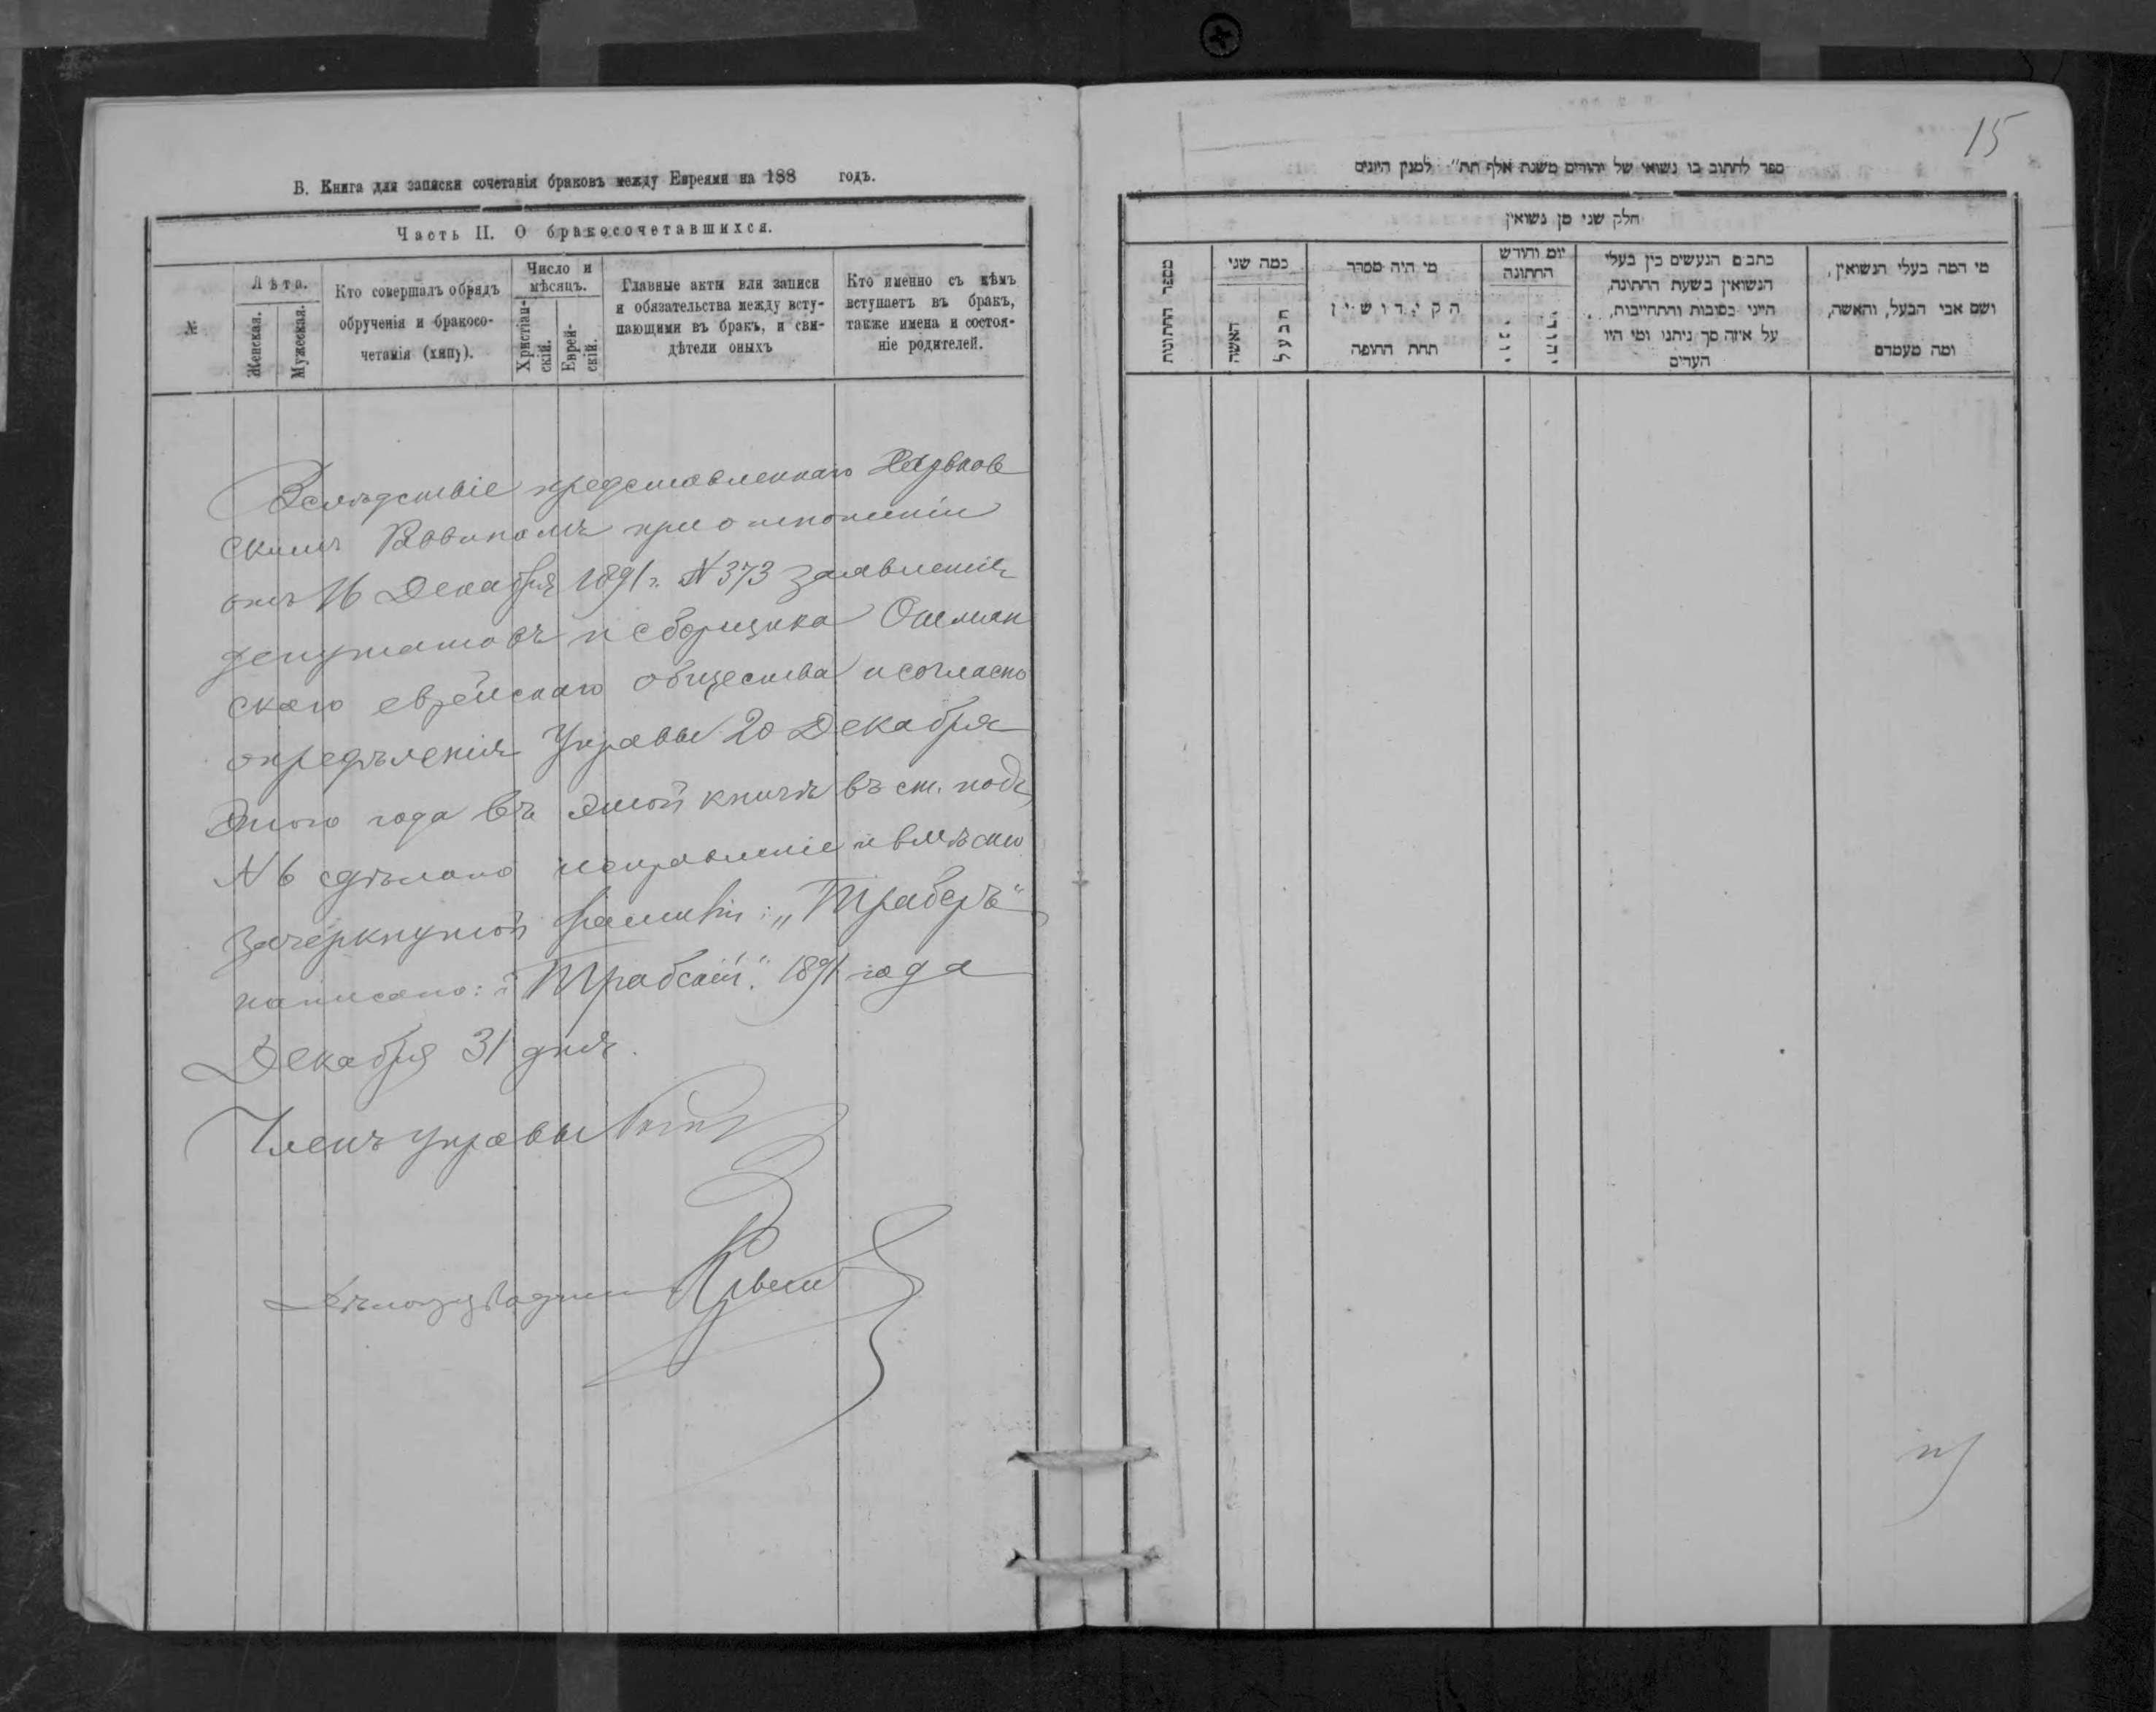 В. Книга для записки сочетанія браковъ между Евреями на 188 годъ.
Часть II. О бракосочетавшихся.
№
Лѣта.
Женская.
Мужеская.
Кто совершалъ обрядъ
обрученія и бракосо-
четанія (хипу).
Число и
мѣсяцъ.
Христіан-
скій.
Еврей-
скій.
Главные акты или записи
и обязательства между всту-
пающими въ бракъ, и сви-
дѣтели оныхъ
Кто именно съ кѣмъ
вступаетъ въ бракъ,
также имена и состоя-
ніе родителей.
Вслѣдствіе представленнаго Харьков
скимъ Раввиномъ при отношеніи
отъ 16 Декабря 1891 г. N 373 заявленія
депутатовъ и сборщика Ошмян
скаго еврейскаго общества и согласно
опредѣленія Управы 20 Декабря
этого года въ этой книгѣ въ ст. подъ
N 6 сдѣлано исправленіе и вмѣсто
зачеркнутой фамиліи: „Траберъ"
написано: „Трабскій". 1891 года
Декабря 31 дня.
Членъ управы
Дѣлопроизводитель
15
ספר לכתוב בו נשואי של יהודים משנת אלף תת״ למנין היונים
חלק שני מן נשואין
מי המה בעלי הנשואין,
ושם אבי הבעל, והאשה,
ומה מעמדם
כתבים הנעשים בין בעלי
הנשואין בשעת החתונה,
היינו כתובות והתחייבות,
על איזה סך ניתנו ומי היו
העדים
יום וחודש
החתונה
יהודי
יוני
מי היה מסדר
הקידושין
תחת החופה
כמה שני
הבעל
האשה
מספר החתונות